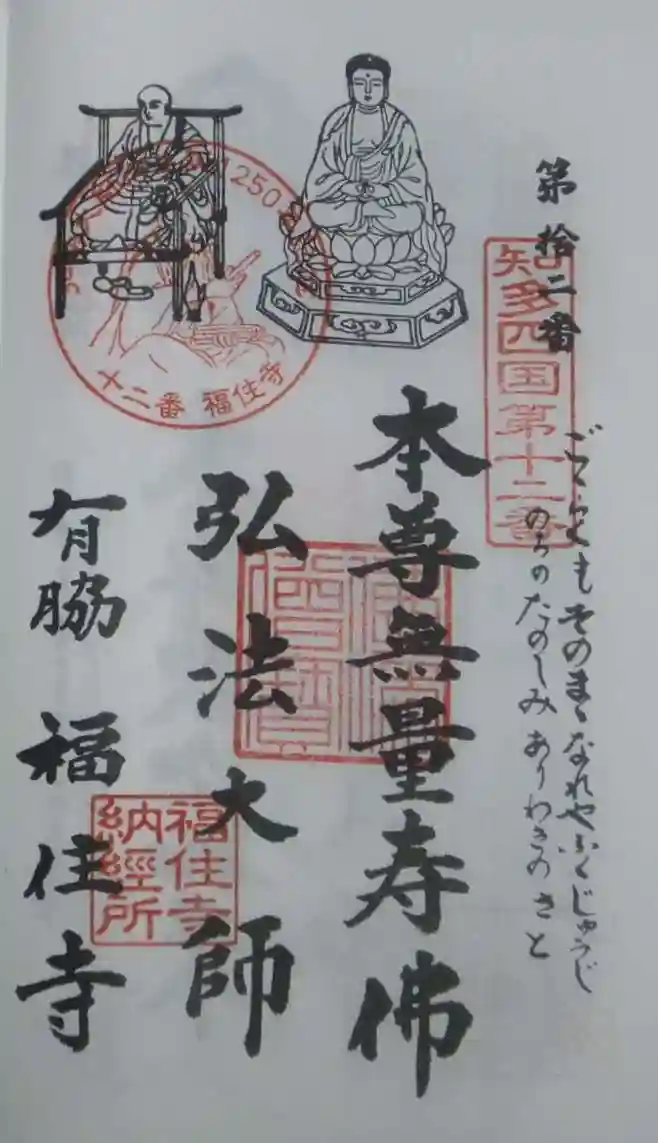 第拾二番
知多四国第十二番
ごくらくもそのまゝなれやふくじゅうじ
のちのたのしみありわきのさと
本尊無量寿佛
弘法大師
有脇 福住寺
1250
十二番 福住寺
福住寺
納經所